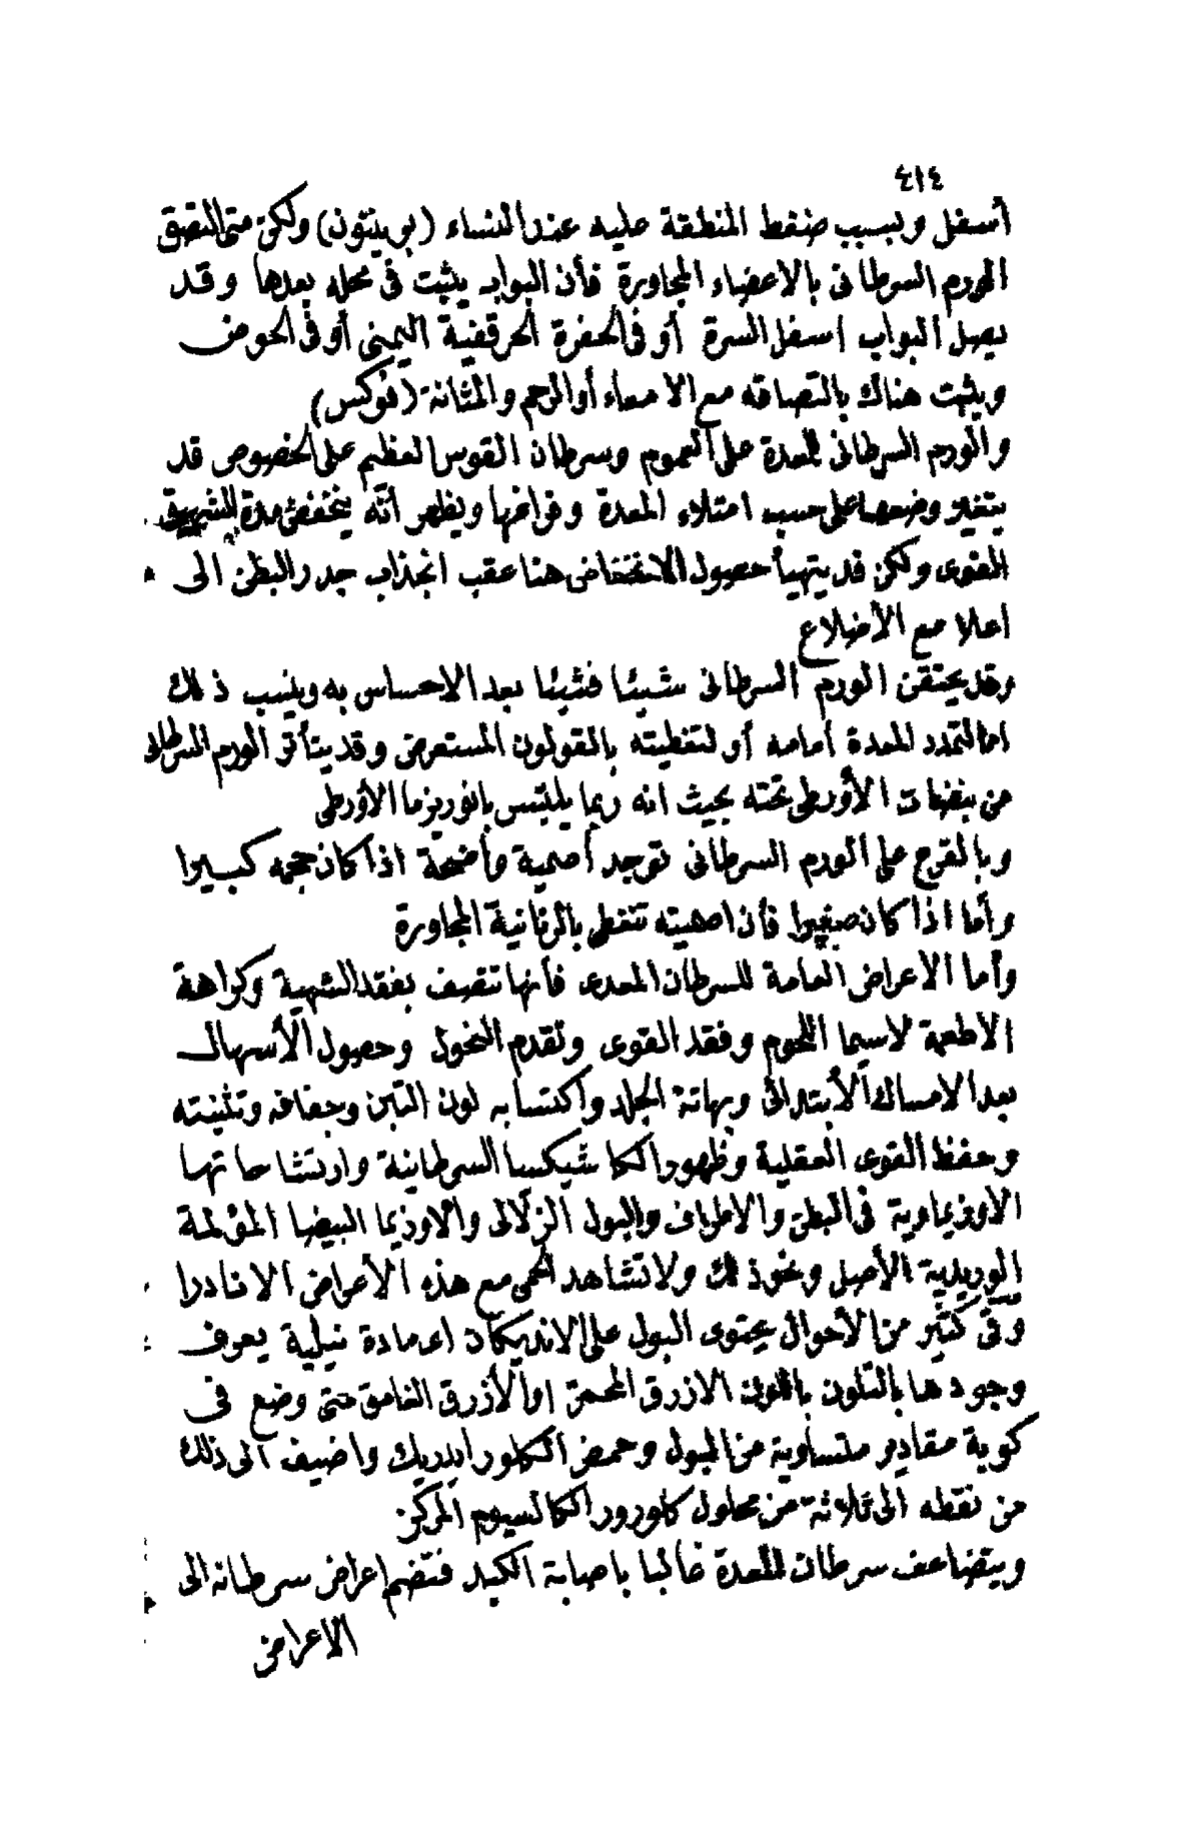 ٤١٤
أسفل وبسبب ضغط المنطقة عليه عند النساء (برينتون) ولكن متى التصق
الورم السرطانى بالاعضاء المجاورة فأن البواب يثبت فى محله بعدها وقد
يصل البواب اسفل السرة أو فى الحفرة الحرقفية اليمنى أو فى الحوض
ويثبت هناك بالتصاقه مع الامعاء أو الرحم والمثانة (فوكس)
والورم السرطانى للمعدة على العموم وسرطان القوس العظيم على الخصوص قد
يتغير وضعها على حسب امتلاء المعدة وفراغها ويظهر أنه ينخفض مدة الشهيق
القوى ولكن قد يتهيأ حصول الانخفاض هنا عقب انجذاب جدر البطن الى
اعلا مع الأضلاع
وقد يختفى الورم السرطانى شيئا فشيئا بعد الاحساس به وينسب ذلك
اما لتمدد المعدة أمامه أو لتغطيته بالقولون المستعرض وقد يتأثر الورم السرطانى
من نبضات الأورطى تحته بحيث انه ربما يلتبس بانوريزما الأورطى
وبالقرع على الورم السرطانى توجد أصمية واضحة اذا كان حجمه كبيرا
وأما اذا كان صغيرا فأن اصميته تتغطى بالرنانية المجاورة
وأما الاعراض العامة للسرطان المعدى فأنها تتصف بفقد الشهية وكراهة
الاطعمة لاسيما اللحوم وفقد القوى وتقدم النحول وحصول الأسهال
بعد الامساك الأبتدائى وبهاتة الجلد واكتسابه لون التبن وجفافه وتثنيته
وحفظ القوى العقلية وظهور الكاشيكسيا السرطانية وارتشاحاتها
الأوزيماوية فى البطن والاطراف والبول الزلالى والاوذيما البيضا المؤلمة
الوريدية الأصل ونحو ذلك ولا تشاهد الحمى مع هذه الأعراض الا نادرا
وفى كثير من الأحوال يحتوى البول على الانديكان اى مادة نيلية يعرف
وجودها بالتلون باللون الازرق المحمر او الأزرق الغامق متى وضع فى
كوبة مقادير متساوية من البول وحمض الكلور ايدريك واضيف الى ذلك
من نقطه الى ثلاثة من محلول كلورور الكالسيوم المركز
ويتضاعف سرطان المعدة غالبا باصابة الكبد فتضم اعراض سرطانه الى
الاعراض